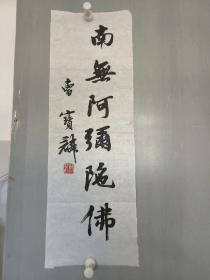 南無阿彌陀佛
曹寶麟